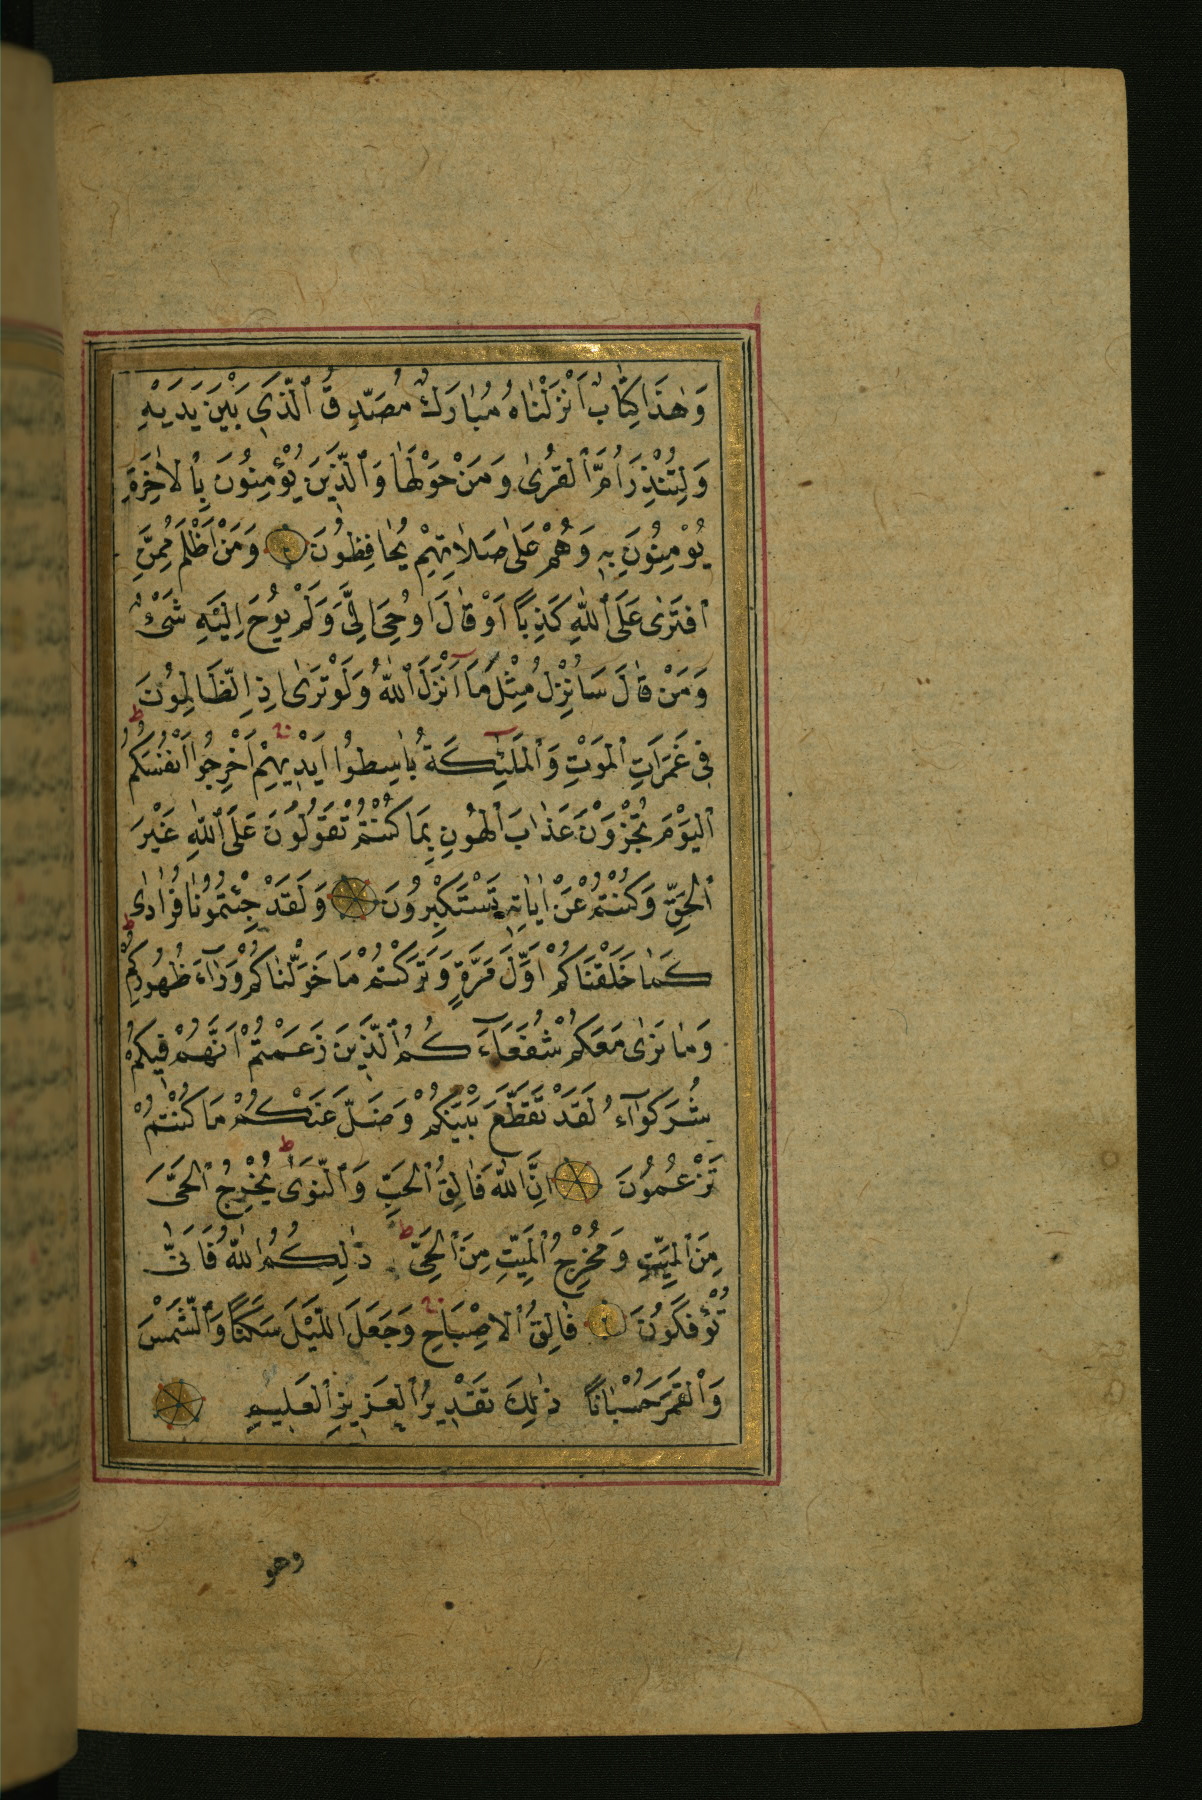 وَهٰذَا كِتَابٌ اَنْزَلْنَاهُ مُبَارَكٌ مُصَدِّقُ ٱلَّذِى بَيْنَ يَدَيْهِ
وَلِتُنْذِرَ اُمَّ ٱلْقُرٰى وَمَنْ حَوْلَهَا وَٱلَّذِينَ يُؤْمِنُونَ بِٱلْاٰخِرَةِ
يُؤْمِنُونَ بِهِ وَهُمْ عَلٰى صَلَاتِهِمْ يُحَافِظُونَ وَمَنْ اَظْلَمُ مِمَّنِ
ٱفْتَرٰى عَلَى ٱللّٰهِ كَذِبًا اَوْ قَالَ اُوحِىَ اِلَىَّ وَلَمْ يُوحَ اِلَيْهِ شَىْءٌ
وَمَنْ قَالَ سَاُنْزِلُ مِثْلَ مَٓا اَنْزَلَ ٱللّٰهُ وَلَوْ تَرٰٓى اِذِ ٱلظَّالِمُونَ
فِى غَمَرَاتِ ٱلْمَوْتِ وَٱلْمَلٰٓئِكَةُ بَاسِطُوٓا اَيْدِيهِمْ اَخْرِجُوٓا اَنْفُسَكُمُ
ٱلْيَوْمَ تُجْزَوْنَ عَذَابَ ٱلْهُونِ بِمَا كُنْتُمْ تَقُولُونَ عَلَى ٱللّٰهِ غَيْرَ
ٱلْحَقِّ وَكُنْتُمْ عَنْ اٰيَاتِهِ تَسْتَكْبِرُونَ وَلَقَدْ جِئْتُمُونَا فُرَادٰى
كَمَا خَلَقْنَاكُمْ اَوَّلَ مَرَّةٍ وَتَرَكْتُمْ مَا خَوَّلْنَاكُمْ وَرَآءَ ظُهُورِكُمْ
وَمَا نَرٰى مَعَكُمْ شُفَعَآءَكُمُ ٱلَّذِينَ زَعَمْتُمْ اَنَّهُمْ فِيكُمْ
شُرَكٰوٓاءُ لَقَدْ تَقَطَّعَ بَيْنَكُمْ وَضَلَّ عَنْكُمْ مَا كُنْتُمْ
تَزْعُمُونَ اِنَّ ٱللّٰهَ فَالِقُ ٱلْحَبِّ وَٱلنَّوٰى يُخْرِجُ ٱلْحَىَّ
مِنَ ٱلْمَيِّتِ وَمُخْرِجُ ٱلْمَيِّتِ مِنَ ٱلْحَىِّ ذٰلِكُمُ ٱللّٰهُ فَاَنّٰى
تُؤْفَكُونَ فَالِقُ ٱلْاِصْبَاحِ وَجَعَلَ ٱللَّيْلَ سَكَنًا وَٱلشَّمْسَ
وَٱلْقَمَرَ حُسْبَانًا ذٰلِكَ تَقْدِيرُ ٱلْعَزِيزِ ٱلْعَلِيمِ
وهو